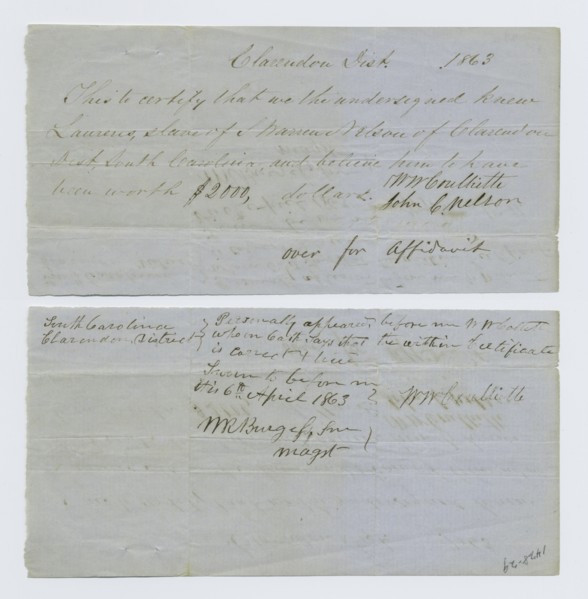 Clarendon Dist. 1863
This to certify that we the undersigned knew
Laurens, slave of S Warren Nelson of Clarendon
Dist, South Carolina and believe him to have
been worth $2000, dollars. W W Coulliette
John C Nelson
over for Affidavit
South Carolina } Personally appeared before me W W
Clarendon District } whom Oath says that the within Certificate
is correct & true
Sworn to before me
this 6th April 1863 } W W Coulliette
W R Burgess,
Magst